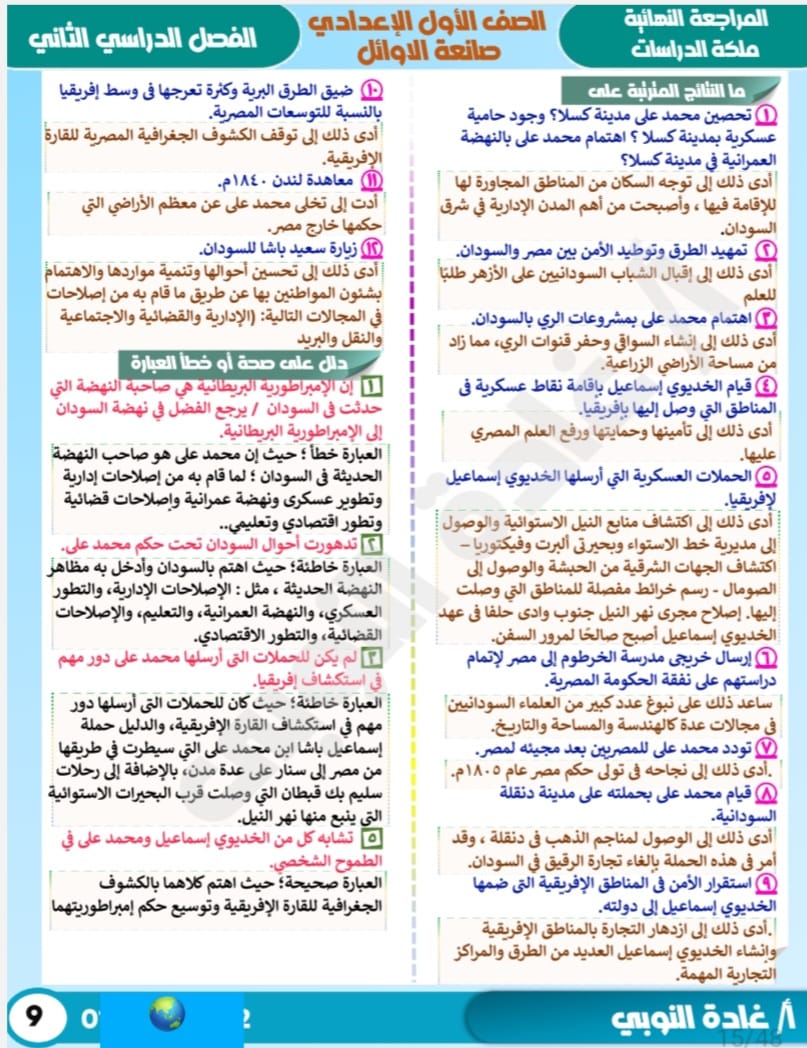 المراجعة النهائية
ملكة الدراسات
الصف الأول الإعدادي
صانعة الاوائل
الفصل الدراسي الثاني
ما النتائج المترتبة على
١ تحصين محمد على مدينة كسلا؟ وجود حامية
عسكرية بمدينة كسلا ؟ اهتمام محمد على بالنهضة
العمرانية في مدينة كسلا؟
أدى ذلك إلى توجه السكان من المناطق المجاورة لها
للإقامة فيها ، وأصبحت من أهم المدن الإدارية في شرق
السودان.
٢ تمهيد الطرق وتوطيد الأمن بين مصر والسودان.
أدى ذلك إلى إقبال الشباب السودانيين على الأزهر طلبًا
للعلم
٣ اهتمام محمد على بمشروعات الري بالسودان.
أدى ذلك إلى إنشاء السواقي وحفر قنوات الري، مما زاد
من مساحة الأراضي الزراعية.
٤ قيام الخديوي إسماعيل بإقامة نقاط عسكرية فى
المناطق التي وصل إليها بإفريقيا.
أدى ذلك إلى تأمينها وحمايتها ورفع العلم المصري
عليها.
٥ الحملات العسكرية التي أرسلها الخديوي إسماعيل
لإفريقيا.
أدى ذلك إلى اكتشاف منابع النيل الاستوائية والوصول
إلى مديرية خط الاستواء وبحيرتى ألبرت وفيكتوريا –
اكتشاف الجهات الشرقية من الحبشة والوصول إلى
الصومال - رسم خرائط مفصلة للمناطق التي وصلت
إليها. إصلاح مجرى نهر النيل جنوب وادى حلفا فى عهد
الخديوي إسماعيل أصبح صالحًا لمرور السفن.
٦ إرسال خريجى مدرسة الخرطوم إلى مصر لإتمام
دراستهم على نفقة الحكومة المصرية.
ساعد ذلك على نبوغ عدد كبير من العلماء السودانيين
فى مجالات عدة كالهندسة والمساحة والتاريخ.
٧ تودد محمد على للمصريين بعد مجيئه لمصر.
.أدى ذلك إلى نجاحه فى تولى حكم مصر عام ١٨٠٥م.
٨ قيام محمد على بحملته على مدينة دنقلة
السودانية.
أدى ذلك إلى الوصول لمناجم الذهب فى دنقلة ، وقد
أمر في هذه الحملة بإلغاء تجارة الرقيق في السودان.
٩ استقرار الأمن فى المناطق الإفريقية التى ضمها
الخديوي إسماعيل إلى دولته.
.أدى ذلك إلى ازدهار التجارة بالمناطق الإفريقية
وإنشاء الخديوي إسماعيل العديد من الطرق والمراكز
التجارية المهمة.
١٠ ضيق الطرق البرية وكثرة تعرجها فى وسط إفريقيا
بالنسبة للتوسعات المصرية.
أدى ذلك إلى توقف الكشوف الجغرافية المصرية للقارة
الإفريقية.
١١ معاهدة لندن ١٨٤٠م.
أدت إلى تخلى محمد على عن معظم الأراضي التي
حكمها خارج مصر.
١٢ زيارة سعيد باشا للسودان.
أدى ذلك إلى تحسين أحوالها وتنمية مواردها والاهتمام
بشئون المواطنين بها عن طريق ما قام به من إصلاحات
في المجالات التالية: (الإدارية والقضائية والاجتماعية
والنقل والبريد
دلل على صحة أو خطأ العبارة
١ إن الإمبراطورية البريطانية هي صاحبة النهضة التي
حدثت فى السودان / يرجع الفضل في نهضة السودان
إلى الإمبراطورية البريطانية.
العبارة خطأ ؛ حيث إن محمد على هو صاحب النهضة
الحديثة فى السودان ؛ لما قام به من إصلاحات إدارية
وتطوير عسكرى ونهضة عمرانية وإصلاحات قضائية
وتطور اقتصادي وتعليمي..
٢ تدهورت أحوال السودان تحت حكم محمد على.
العبارة خاطئة؛ حيث اهتم بالسودان وأدخل به مظاهر
النهضة الحديثة ، مثل : الإصلاحات الإدارية، والتطور
العسكري، والنهضة العمرانية، والتعليم، والإصلاحات
القضائية، والتطور الاقتصادي.
٣ لم يكن للحملات التى أرسلها محمد على دور مهم
في استكشاف إفريقيا.
العبارة خاطئة؛ حيث كان للحملات التى أرسلها دور
مهم في استكشاف القارة الإفريقية، والدليل حملة
إسماعيل باشا ابن محمد على التي سيطرت في طريقها
من مصر إلى سنار على عدة مدن، بالإضافة إلى رحلات
سليم بك قبطان التي وصلت قرب البحيرات الاستوائية
التي ينبع منها نهر النيل.
٥ تشابه كل من الخديوي إسماعيل ومحمد على في
الطموح الشخصي.
العبارة صحيحة؛ حيث اهتم كلاهما بالكشوف
الجغرافية للقارة الإفريقية وتوسيع حكم إمبراطوريتهما
أ/ غادة النوبي
9
15/48